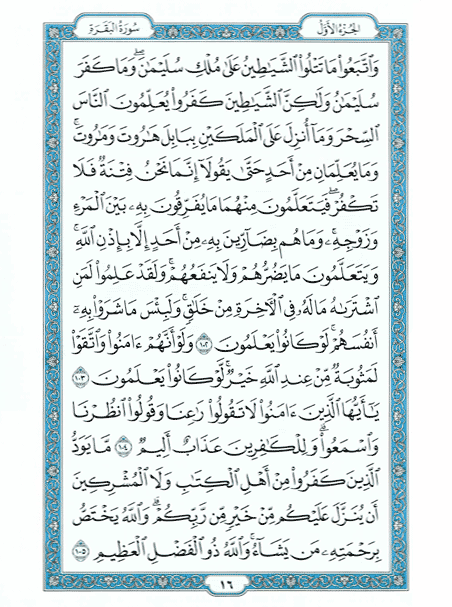 الجزء الأول
سورة البقرة
وَاتَّبَعُوا مَا تَتْلُوا الشَّيَاطِينُ عَلَىٰ مُلْكِ سُلَيْمَانَ ۖ وَمَا كَفَرَ
سُلَيْمَانُ وَلَٰكِنَّ الشَّيَاطِينَ كَفَرُوا يُعَلِّمُونَ النَّاسَ
السِّحْرَ وَمَا أُنزِلَ عَلَى الْمَلَكَيْنِ بِبَابِلَ هَارُوتَ وَمَارُوتَ ۚ
وَمَا يُعَلِّمَانِ مِنْ أَحَدٍ حَتَّىٰ يَقُولَا إِنَّمَا نَحْنُ فِتْنَةٌ فَلَا
تَكْفُرْ ۖ فَيَتَعَلَّمُونَ مِنْهُمَا مَا يُفَرِّقُونَ بِهِ بَيْنَ الْمَرْءِ
وَزَوْجِهِ ۚ وَمَا هُم بِضَارِّينَ بِهِ مِنْ أَحَدٍ إِلَّا بِإِذْنِ اللَّهِ ۚ
وَيَتَعَلَّمُونَ مَا يَضُرُّهُمْ وَلَا يَنفَعُهُمْ ۚ وَلَقَدْ عَلِمُوا لَمَنِ
اشْتَرَاهُ مَا لَهُ فِي الْآخِرَةِ مِنْ خَلَاقٍ ۚ وَلَبِئْسَ مَا شَرَوْا بِهِ
أَنفُسَهُمْ ۚ لَوْ كَانُوا يَعْلَمُونَ ١٠٢ وَلَوْ أَنَّهُمْ آمَنُوا وَاتَّقَوْا
لَمَثُوبَةٌ مِّنْ عِندِ اللَّهِ خَيْرٌ ۖ لَّوْ كَانُوا يَعْلَمُونَ ١٠٣
يَا أَيُّهَا الَّذِينَ آمَنُوا لَا تَقُولُوا رَاعِنَا وَقُولُوا انظُرْنَا
وَاسْمَعُوا ۗ وَلِلْكَافِرِينَ عَذَابٌ أَلِيمٌ ١٠٤ مَّا يَوَدُّ
الَّذِينَ كَفَرُوا مِنْ أَهْلِ الْكِتَابِ وَلَا الْمُشْرِكِينَ
أَن يُنَزَّلَ عَلَيْكُم مِّنْ خَيْرٍ مِّن رَّبِّكُمْ ۗ وَاللَّهُ يَخْتَصُّ
بِرَحْمَتِهِ مَن يَشَاءُ ۚ وَاللَّهُ ذُو الْفَضْلِ الْعَظِيمِ ١٠٥
١٦